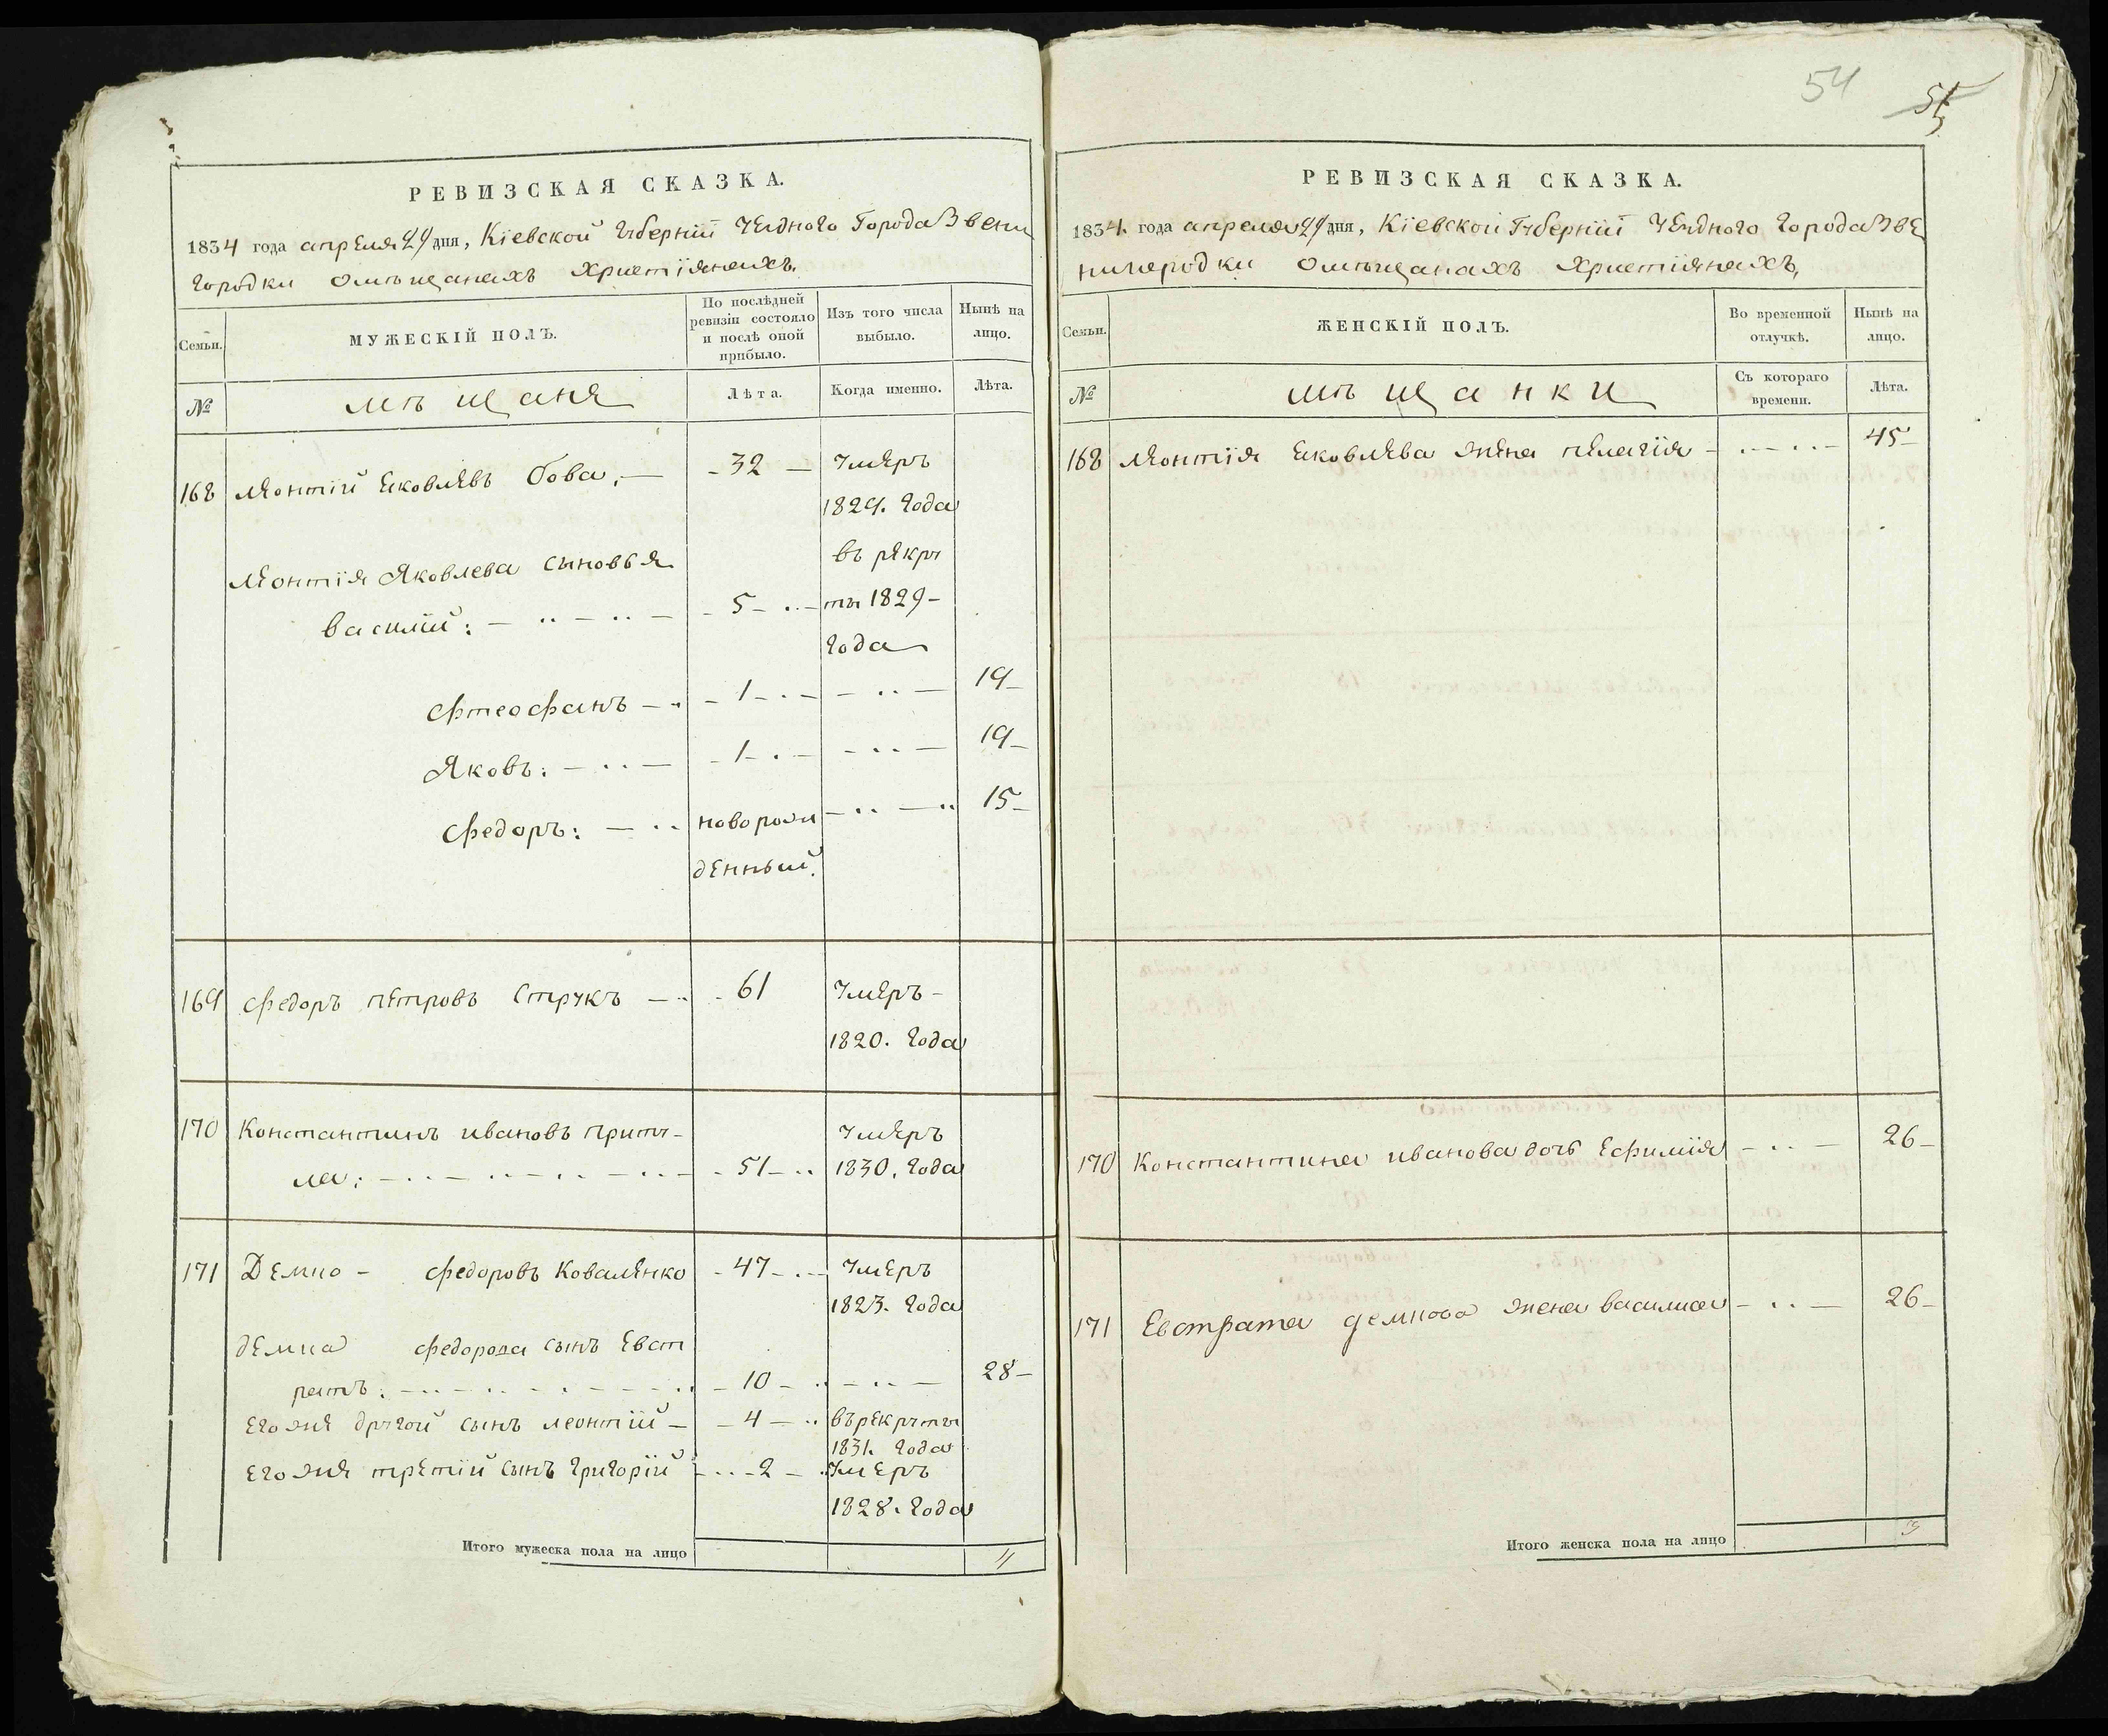 54
РЕВИЗСКАЯ СКАЗКА.
1834 года апреля 29 дня, Кіевской Губерніи Уезднаго Города Звени
городки омѣщанахъ Христіянахъ.
Семьи.
МУЖЕСКІЙ ПОЛЪ.
По послѣдней ревизіи состояло и послѣ оной прибыло.
Изъ того числа выбыло.
Нынѣ на лицо.
№
мѣщаня
Лѣта.
Когда именно.
Лѣта.
168 Леонтій Яковлевъ Бова, 32 Умеръ
1829. года
въ рекру
Леонтія Яковлева сыновья
Василій: 5 ты 1829
года
Фтеофанъ 1 19
Яковъ: 1 19
Федоръ: наворож 15
денный.
169 Федоръ Петровъ Струкъ 61 Умеръ
1820. года
170 Константинъ ивановъ Приту- Умеръ
ла: 51 1830. года
171 Демко Федоровъ Коваленко 47 Умеръ
1823. года
Демка Федорова сынъ Евст
ратъ: 10 28
Егоже другой сынъ леонтій 4 въ рекруты
1831. года
Егоже третій сынъ григорій 2 Умеръ
1828. года
Итого мужеска пола на лицо 4
РЕВИЗСКАЯ СКАЗКА.
1834 года апреля 29 дня, Кіевской Губерніи Уезднаго города Зве
нигородки омѣщанахъ Христіянахъ,
Семьи.
ЖЕНСКІЙ ПОЛЪ.
Во временной отлучкѣ.
Нынѣ на лицо.
№
мѣщанки
Съ котораго времени.
Лѣта.
168 Леонтія Яковлева жена пелагія 45
170 Константина иванова дочь Ефимія 26
171 Евстрата демкова жена василиса 26
Итого женска пола на лицо 3